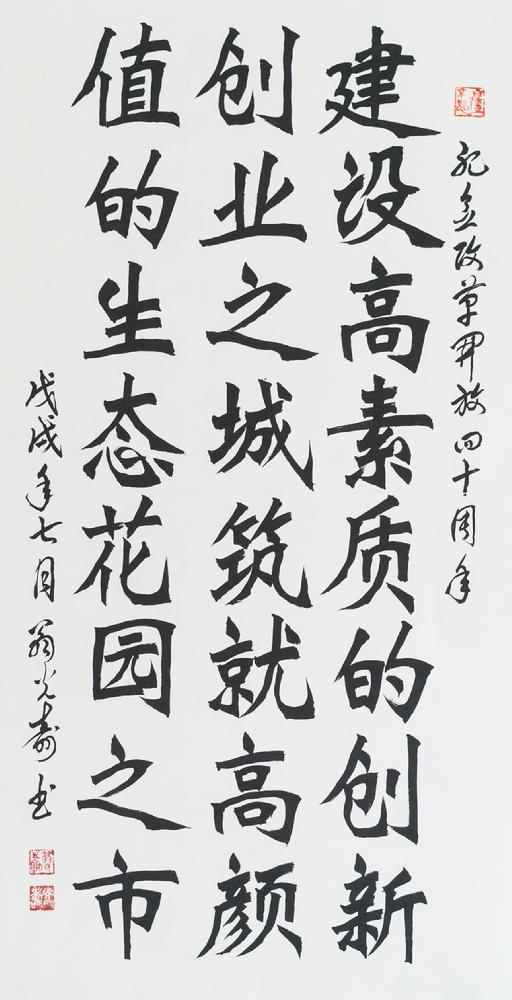 纪念改革开放四十周年
建设高素质的创新
创业之城筑就高颜
值的生态花园之市
戊戌年七月翁光寿书